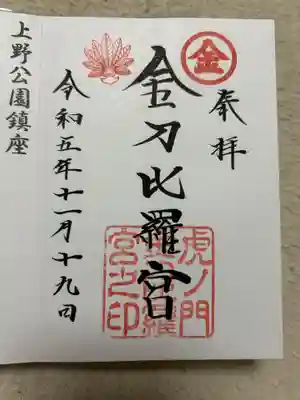 奉拝
金
金刀比羅宮
虎ノ門
金刀比羅
宮之印
令和五年十一月十九日
上野公園鎮座